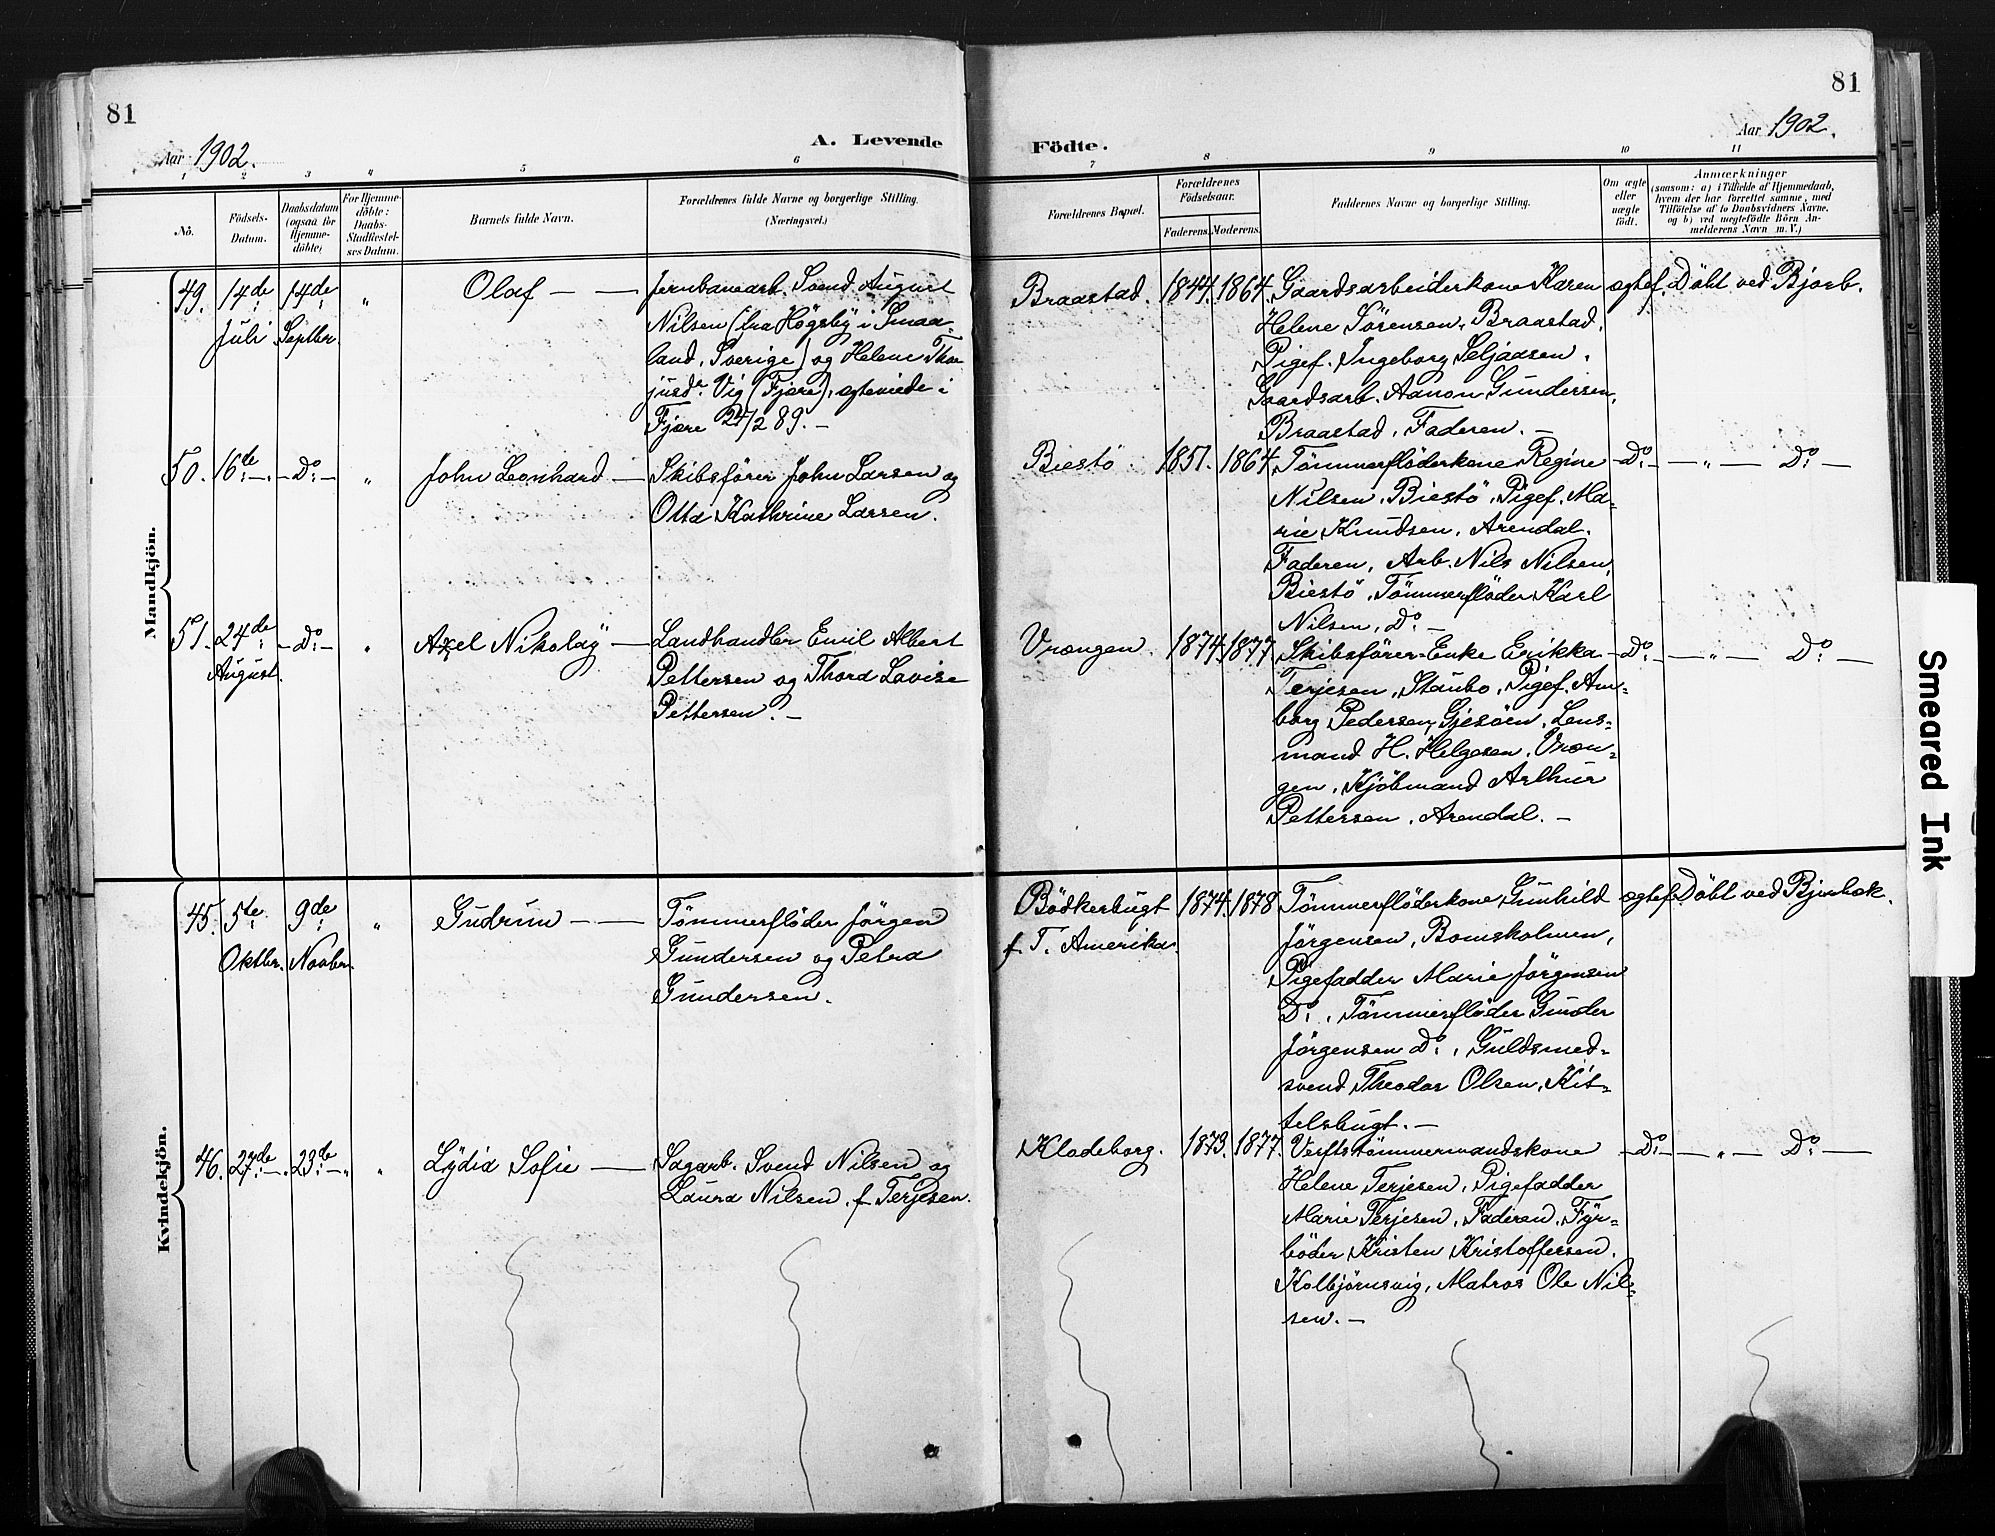 81
81
Aar 1902.
A. Levende
Födte.
Aar 1902.
1
2
3
4
5
6
7
8
9
10
11
No.
Födsels-
Datum.
Daabsdatum
(ogsaa for
Hjemme-
döbte)
For Hjemme-
döbte:
Daabs-
Stadfæstel-
ses Datum.
Barnets fulde Navn.
Forældrenes fulde Navne og borgerlige Stilling.
(Næringsvei.)
Forældrenes Bopæl.
Forældrenes
Födselsaar.
Faderens.
Moderens.
Faddernes Navne og borgerlige Stilling.
Om ægte
eller
uægte
født.
Anmærkninger
(saasom: a) i Tilfælde af Hjemmedaab,
hvem der har forrettet samme, med
Tilføielse af to Daabsvidners Navne,
og b) ved uegtefødte Börn An-
melderens Navn m. V.)
Mandkjön.
49. 14de Juli
14de Septbr.
"
Olaf — —
Jernbanearb. Svend August
Nilsen (fra Högsby i Smaa-
land, Sverige) og Helene Thor
jusdr. Vig (Fjære), egteviede i
Fjære 24/2 89. —
Braastad.
1844.
1864.
Gaardsarbeiderkone Karen
Helene Sörensen, Braastad,
Pigef. Ingeborg Seljaasen,
Gaardsarb. Aanon Gundersen,
Braastad, Faderen. —
ægtef.
Döbt ved Bjorb.
50. 16de —
— Do —
"
John Leonhard —
Skibsförer John Larsen og
Otta Kathrine Larsen.
Biestö.
1851.
1864.
Tömmerflöderkone Regine
Nilsen, Biestö, Pigef. Ma-
rie Knudsen, Arendal.
Faderen, Arb. Nils Nilsen,
Biestö, Tömmerflöder Karl
Nilsen, Do —
— Do —
— " — Do —
51. 24de August.
— Do —
"
Axel Nikolay —
Landhandler Emil Albert
Pettersen og Thora Lovise
Pettersen. —
Vrængen.
1874.
1877.
Skibsförer-Enke Erikka
Terjesen, Staubo, Pigef. Am-
borg Pedersen, Gjesöen, Lens-
mand H. Helgesen, Vræn-
gen, Kjöbmand Arthur
Pettersen, Arendal. —
— Do —
— " — Do —
Kvindekjön.
45. 5te Oktbr.
9de Novbr.
"
Gudrun — —
Tömmerflöder Jörgen
Gundersen og Petra
Gundersen.
Bödkerbugt
f. T. Amerika.
1874.
1878.
Tömmerflöderkone Gunhild
Jörgensen, Bomsholmen,
Pigefadder Marie Jörgensen
Do, Tömmerflöder Gunder
Jörgensen Do, Guldsmed-
svend Theodor Olsen, Kit-
telsbugt. —
ægtef.
Döbt ved Bjorbæk.
46. 27de —
23de — "
"
Lydia Sofie —
Sagarb. Svend Nilsen og
Laura Nilsen, f. Terjesen.
Klodeborg.
1873.
1877.
Verftstömmermandskone
Helene Terjesen, Pigefadder
Marie Terjesen, Faderen, Fyr-
böder Kristen Kristoffersen.
Kolbjörnsvig, Matros Ole Nil-
sen. —
— Do —
— " — Do —
Smeared Ink